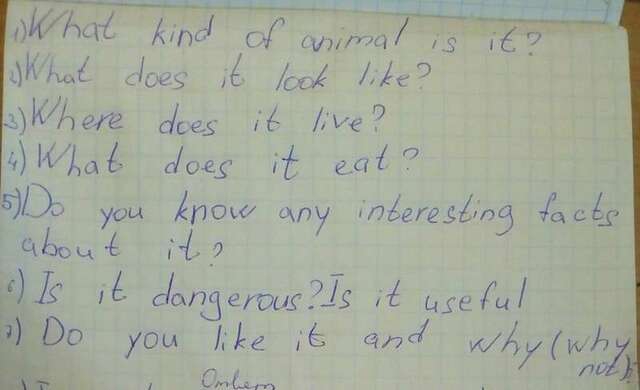 1) What kind of animal is it?
2) What does it look like?
3) Where does it live?
4) What does it eat?
5) Do you know any interesting facts
about it?
6) Is it dangerous? Is it useful
7) Do you like it and why (why
not)